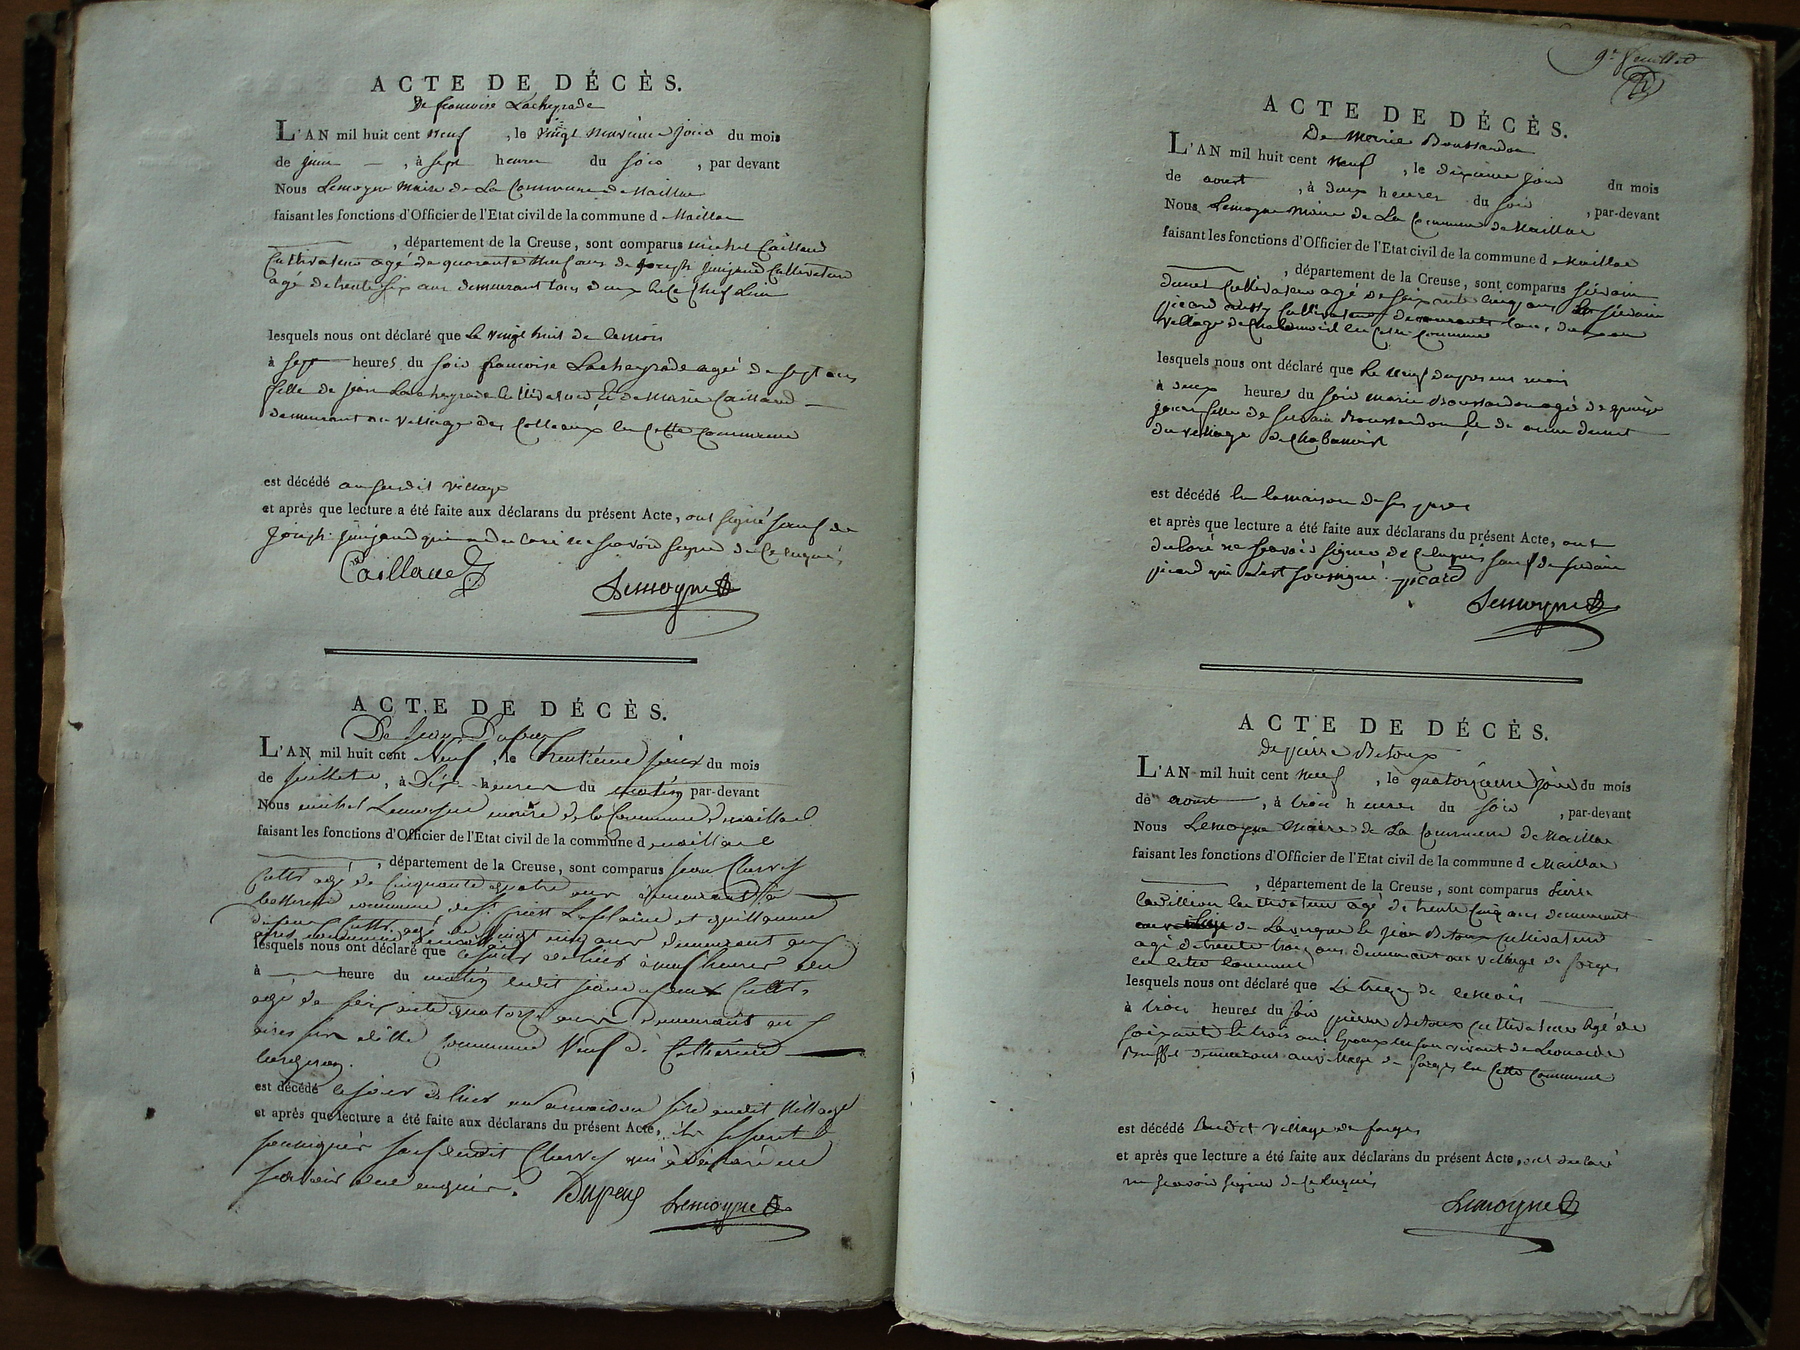 ACTE DE DÉCÈS.
De francoise Lacheyrade
L'AN mil huit cent neuf , le vingt neuvieme jour du mois
de juin , à sept heures du soir , par devant
Nous Lemoyne Maire de La Commune de Maillac
faisant les fonctions d'Officier de l'Etat civil de la commune d Maillac
, département de la Creuse, sont comparus michel Caillaud
Cultivateur agé de quarante neuf ans de joseph Cultivateur
agé de trente six ans demeurant tous deux
lesquels nous ont déclaré que Le vingt huit de le mois
à sept heures du soir francoise Lacheyrade agé de sept ans
fille de jean Lacheyrade Cultivateur & de Marie Caillaud
demeurant au village des Colleaux en Cette Commune
est décédé au susdit village
et après que lecture a été faite aux déclarans du présent Acte, ont signé sauf de
joseph qui a declaré ne scavoir signer de Ce enquis
Caillaud
Lemoyne
ACTE DE DÉCÈS.
De
L'AN mil huit cent Neuf , le trentième jour du mois
de juillet , à Dix heures du matin par-devant
Nous michel Lemoyne maire de la Commune de maillac
faisant les fonctions d'Officier de l'Etat civil de la commune d maillac
, département de la Creuse, sont comparus jean
Cultr agé de Cinquante quatre ans demeurant à
commune de St et guillaume
agé de vingt ans demeurant au
lesquels nous ont déclaré que le jour d'hier à neuf heures du
à heure du matin ledit Cultr
agé de soixante quatorze ans demeurant au
dite Commune Veuf de Catherine
est décédé le jour d'hier en sa maison audit Village
et après que lecture a été faite aux déclarans du présent Acte,
soussignés sauf ledit qui a déclaré ne
savoir enquis.
Dupeux Lemoyne
9e feuillet
ACTE DE DÉCÈS.
De Marie Boussardon
L'AN mil huit cent neuf , le dixieme jour du mois
de aoust , à deux heures du soir , par-devant
Nous Lemoyne Maire de La Commune de Maillac
faisant les fonctions d'Officier de l'Etat civil de la commune d Maillac
, département de la Creuse, sont comparus silvain
Cultivateur agé de soixante Cinq ans & silvain
picard aussy Cultivateur demeurants tous deux au
village de en Cette Commune
lesquels nous ont déclaré que Le neuf du present mois
à deux heures du soir marie Boussardon agé de quinze
jours fille de silvain Boussardon & de
du village de
est décédé en la maison de ses pere
et après que lecture a été faite aux déclarans du présent Acte, ont
declaré ne scavoir signer de Ce enquis sauf de silvain
picard qui s'est soussigné. picard
Lemoyne
ACTE DE DÉCÈS.
De pierre Betoux
L'AN mil huit cent neuf , le quatorzieme jour du mois
de aoust , à trois heures du soir , par-devant
Nous Lemoyne Maire de La Commune de Maillac
faisant les fonctions d'Officier de l'Etat civil de la commune d Maillac
, département de la Creuse, sont comparus
Cultivateur agé de trente Cinq ans demeurant
de Lavergne & jean Betoux Cultivateur
agé de trente trois ans demeurant au village de forges
en Cette Commune
lesquels nous ont déclaré que Le treize de le mois
à trois heures du soir pierre Betoux Cultivateur agé de
soixante & trois ans Epoux en son vivant de Leonarde
Buffet demeurant au village de forges en Cette Commune
est décédé audit village de forges
et après que lecture a été faite aux déclarans du présent Acte, ont declaré
ne scavoir signer de Ce enquis
Lemoyne